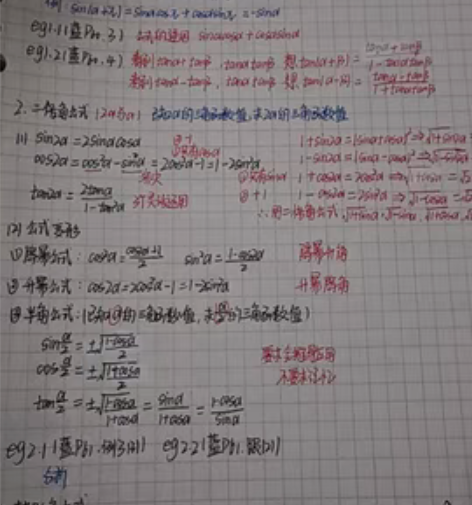 sin(α+π)=sinαcosπ+cosαsinπ=-sinα
eg1.1(蓝P61.3) 公式的逆用 sinαcosα+cosαsinα
eg1.2(蓝P61.4) 看到tanα+tanβ, tanαtanβ 想 tan(α+β)=(tanα+tanβ)/(1-tanαtanβ)
看到tanα-tanβ, tanαtanβ 想 tan(α-β)=(tanα-tanβ)/(1+tanαtanβ)
2. 二倍角公式 (2α与α) 已知α的三角函数值,求2α的三角函数值
(1) sin2α=2sinαcosα
cos2α=cos²α-sin²α=2cos²α-1=1-2sin²α
tan2α=2tanα/(1-tan²α)
1+sin2α=(sinα+cosα)²
1-sin2α=(sinα-cosα)²
1+cos2α=2cos²α
1-cos2α=2sin²α
(2) 公式变形
①降幂公式: cos²α=(cos2α+1)/2 sin²α=(1-cos2α)/2 降幂升角
②升幂公式: cos2α=2cos²α-1=1-2sin²α 升幂降角
③半角公式: (已知α的三角函数值, 求α/2的三角函数值)
sin α/2=±√((1-cosα)/2)
cos α/2=±√((1+cosα)/2)
tan α/2=±√((1-cosα)/(1+cosα))=sinα/(1+cosα)=(1-cosα)/sinα
不要求记忆
eg2.1(蓝P61.例3(1)) eg2.2(蓝P61.跟(2))